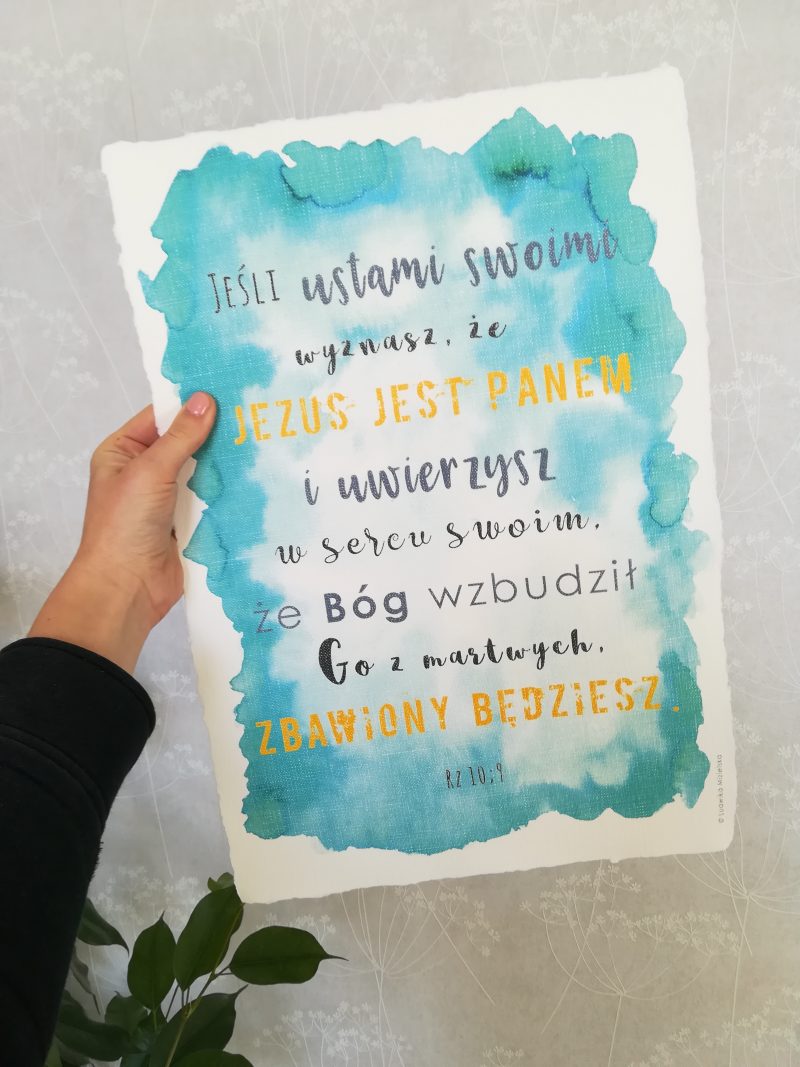 Jeśli ustami swoimi
wyznasz, że
JEZUS JEST PANEM
i uwierzysz
w sercu swoim,
że Bóg wzbudził
Go z martwych,
ZBAWIONY BĘDZIESZ.
Rz 10;9
© Ludwika